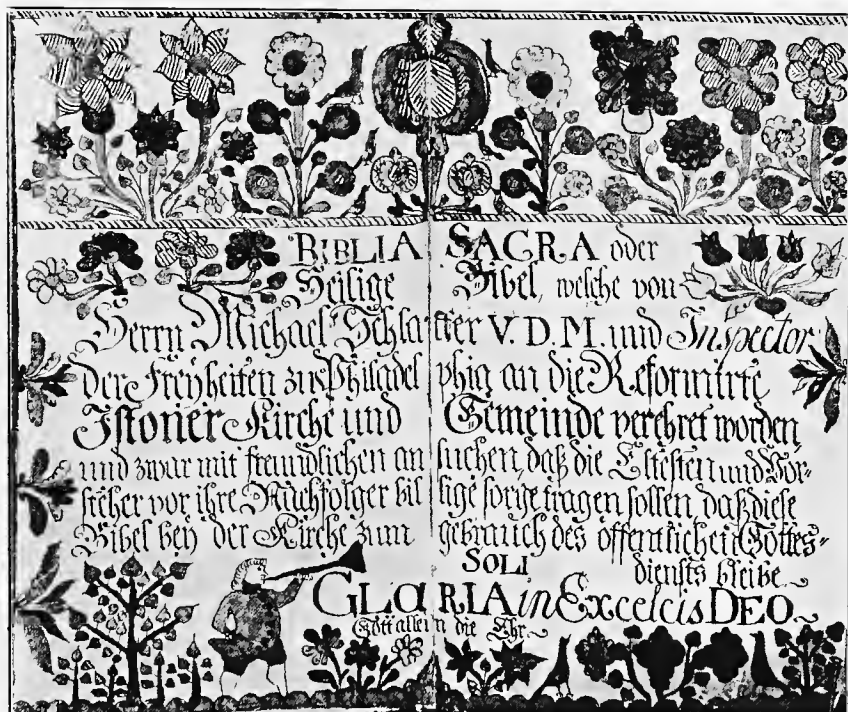 BIBLIA SACRA oder
Heilige Bibel, welche von
Herrn Michael Schlatter V. D. M. und Inspector
der Freyheiten zu Philadelphia an die Reformirte
Kirche und Gemeinde verehret worden
und zwar mit freundlichen ansuchen, daß die Eltesten und Vor-
steher vor ihre Nachfolger sorge tragen sollen, daß diese
Bibel bey der Kirche zum gebrauch des öffentlichen Gottes-
diensts bleibe
SOLI
GLORIA in Excelcis DEO
Gott allein die Ehr